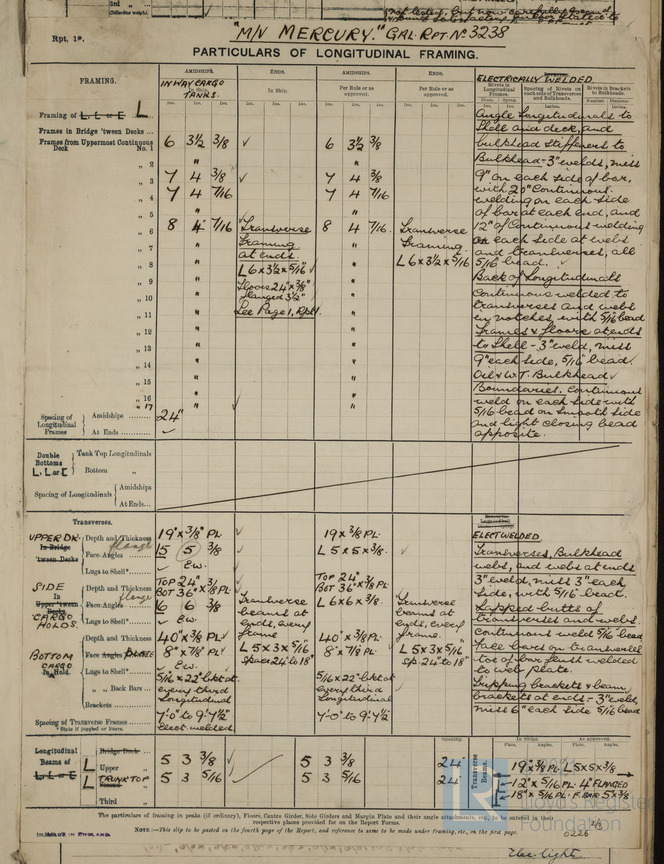 "M/V MERCURY." GAL. RPT Nº 3238
Rpt. 1*.
PARTICULARS OF LONGITUDINAL FRAMING.
FRAMING.
AMIDSHIPS. ENDS. AMIDSHIPS. ENDS.
IN WAY CARGO TANKS.
In Ship. In Ship. Per Rule or as approved. Per Rule or as approved.
ELECTRICALLY WELDED.
Rivets in Longitudinal Frames. Spacing of Rivets on each side of Transverses and Bulkheads. Rivets in Brackets to Bulkheads.
Framing of L, L or C L
Frames in Bridge 'tween Decks ...
Frames from Uppermost Continuous Deck No. 1 6 3½ 3/8 ✓ 6 3½ 3/8
„ 2 "
„ 3 7 4 3/8 ✓ 7 4 3/8
„ 4 7 4 7/16 7 4 7/16
„ 5 "
„ 6 8 4 7/16 8 4 7/16
„ 7 "
„ 8 "
„ 9 "
„ 10 "
„ 11 "
„ 12 "
„ 13 "
„ 14 "
„ 15 "
„ 16 "
„ 17 "
Transverse
Framing
at ends.
L 6 x 3½ x 5/16"
Floors 24" x 3/8"
flanged 3½"
See Page 1, Rpt 1.
Transverse
Framing.
L 6 x 3½ x 5/16
Angle Longitudinals to
Shell and deck, and
bulkhead stiffeners to
Bulkhead - 3" welds, miss
9" on each side of bar,
with 20" Continuous
welding on each side
of bar at each end, and
12" of Continuous welding
on each side at webs
and transverses, all
5/16 bead.
Back of Longitudinals
Continuous welded to
transverses and webs
in notches, with 5/16 bead
Frames & floors at ends
to Shell - 3" weld, miss
9" each side, 5/16 bead.
Oil & W.T. Bulkhead
Boundaries. Continuous
weld on each side with
5/16 bead on smooth side
and light closing bead
opposite.
Spacing of Longitudinal Frames Amidships 24"
At Ends
Double Bottoms L, L or C Tank Top Longitudinals
Bottom „
Spacing of Longitudinals Amidships
At Ends...
Transverses.
UPPER DK. In Bridge 'tween Decks
Depth and Thickness 19" x 3/8" PL 19 x 3/8 PL.
Face Angles flange 5 5 3/8 L 5 x 5 x 3/8.
Lugs to Shell* ✓ E.W.
SIDE In Upper 'tween Decks CARGO HOLDS.
Depth and Thickness TOP 24" BOT 36" x 3/8 PL TOP 24" BOT 36" x 3/8 PL.
Face Angles flange 6 6 3/8 L 6 x 6 x 3/8.
Lugs to Shell* ✓ E.W.
BOTTOM CARGO In Hold.
Depth and Thickness 40" x 3/8 PL 40" x 3/8 PL.
Face Angles PLATE 8" x 7/8 PL 8" x 7/8 PL.
Lugs to Shell* ✓ E.W.
„ „ Back Bars
Brackets
5/16 x 22" bkt at
every third
Longitudinal
5/16 x 22" bkt at
every third
Longitudinal
Spacing of Transverse Frames 7'-0" to 9'-7½" 7'-0" to 9'-7½"
* State if joggled or liners. Elect. welded
Transverse
beams at
ends, every
frame
L 5 x 3 x 5/16
space 24" to 18"
Transverse
beams at
ends, every
frame.
L 5 x 3 x 5/16
sp. 24" to 18"
ELECT WELDED.
Transverses, Bulkhead
webs, and webs at ends
3" weld, miss 3" each
side, with 5/16 bead.
Lapped butts of
transverses and webs.
Continuous weld 5/16 bead
Face bars on transverses
toe of bar flush welded
to web plate.
Tripping brackets & beam
brackets at ends - 3" weld,
miss 6" each side 5/16 bead
Spacing. In Ships. As approved.
Plate. Angles. Plate. Angles.
Longitudinal Beams of L, L or C
Bridge Deck
L Upper „ 5 3 3/8 5 3 3/8 24"
L TRUNK TOP 5 3 5/16 5 3 5/16 24"
Third „
Transverse Beams.
19" x 3/8 PL. L 5 x 5 x 3/8
12" x 5/16 PL. 4" FLANGED
18" x 5/16 PL. F. BAR 5 x 3/8
The particulars of framing in peaks (if ordinary), Floors, Centre Girder, Side Girders and Margin Plate and their angle attachments, etc., to be entered in their
respective places provided for on the Report Forms.
NOTE:—This slip to be posted on the fourth page of the Report, and reference to same to be made under framing, etc., on the first page.
MADE IN ENGLAND.
Lloyd's Register
Foundation
0226 2/3
Elec. light